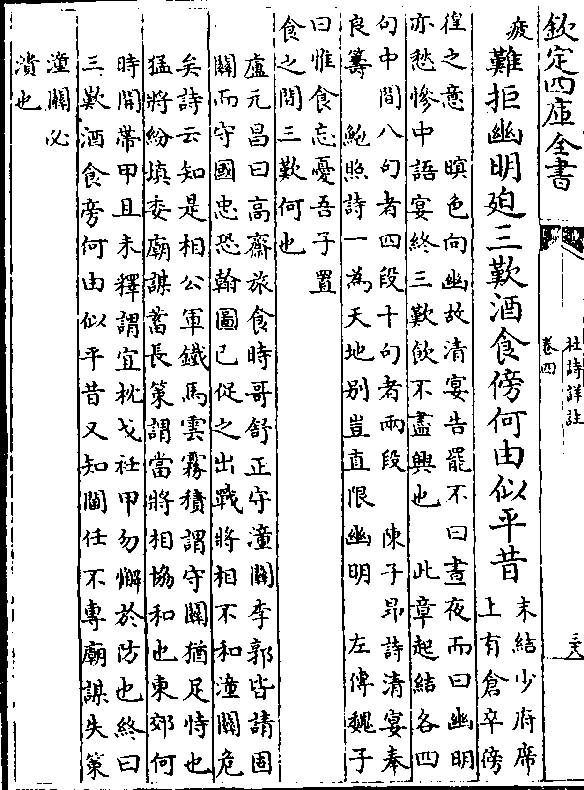 欽定四庫全書
杜詩詳註
卷四
疲
難拒幽明迫三歎酒食傍何由似平昔
末結少府席
上有倉卒傍
徨之意 暝色向幽故清宴告罷不曰晝夜而曰幽明
亦愁慘中語宴終三歎飲不盡興也 此章起結各四
句中間八句者四段十句者兩段 陳子昂詩清宴奉
良籌 鮑照詩一為天地别豈直限幽明 左傳魏子
曰惟食忘憂吾子置
食之間三歎何也
盧元昌曰高齋旅食時哥舒正守潼關李郭皆請固
關而守國忠恐翰圖已促之出戰將相不和潼關危
矣詩云知是相公軍鐵馬雲霧積謂守關猶足恃也
猛將紛填委廟謀蓄長策謂當將相協和也東郊何
時開帶甲且未釋謂宜枕戈衽甲勿懈於防也終曰
三歎酒食旁何由似平昔又知閫任不專廟謀失策
潼關必
潰也